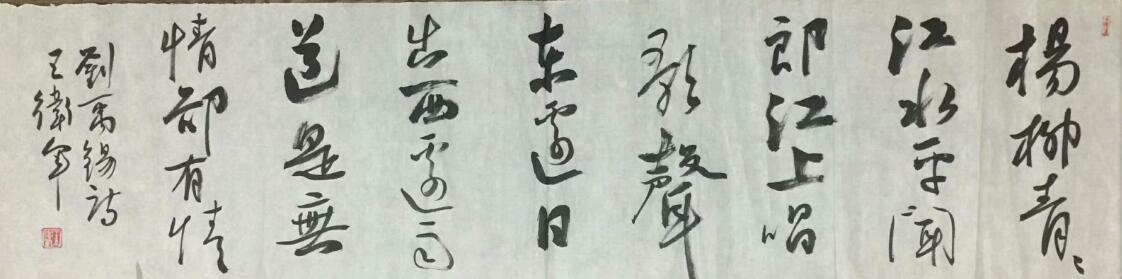 楊柳青〻
江水平聞
郎江上唱
歌聲
東邊日
出西邊雨
道是無
情却有情
劉禹錫詩
王衛軍